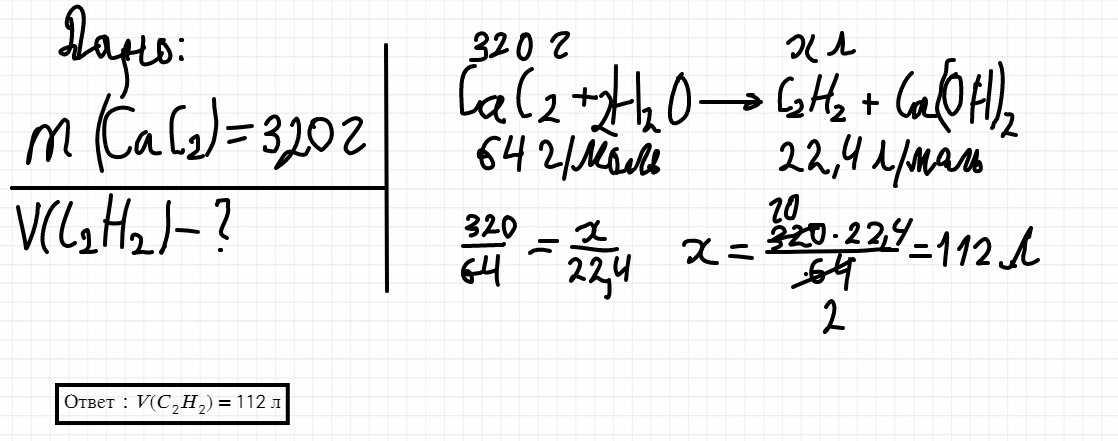 Дано:
m(CaC₂)=320 г
V(C₂H₂)-?
320 г x л
CaC₂+2H₂O→C₂H₂+Ca(OH)₂
64 г/моль 22,4 л/моль
320/64=x/22,4 x=320·22,4/64=112 л
20
2
Ответ : V(C₂H₂) = 112 л